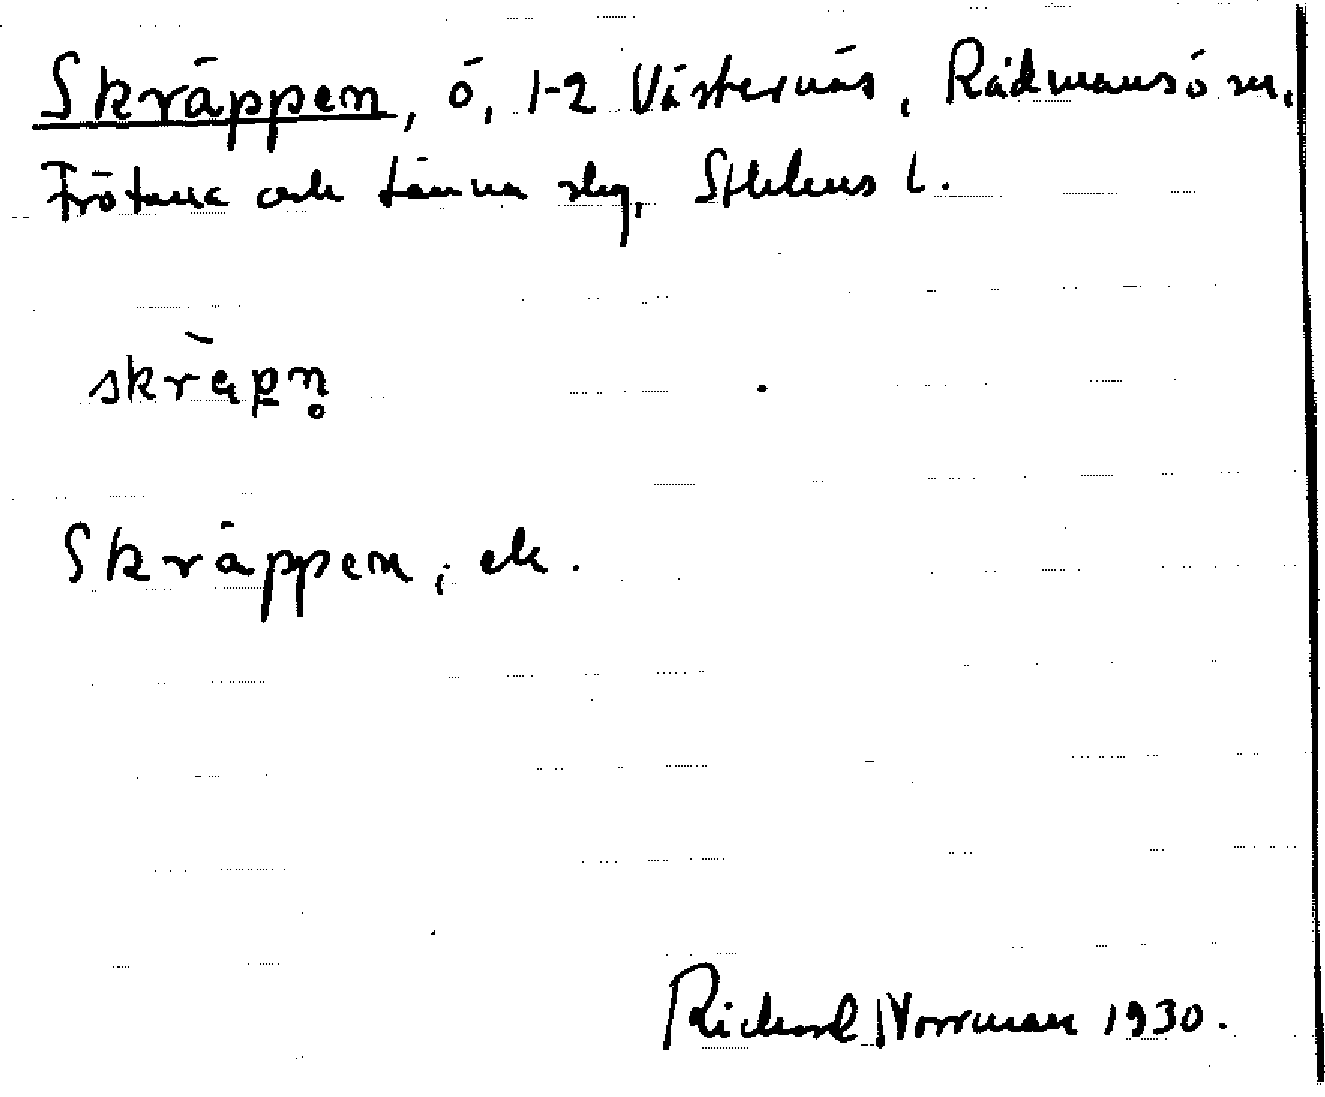 Skräppen, ö, 1-2 Västernäs, Rådmansö sn,
Frötuna och Länna skg, Sthlms l.
skràpn̥
Skräppen, ek.
Richard Norrman 1930.